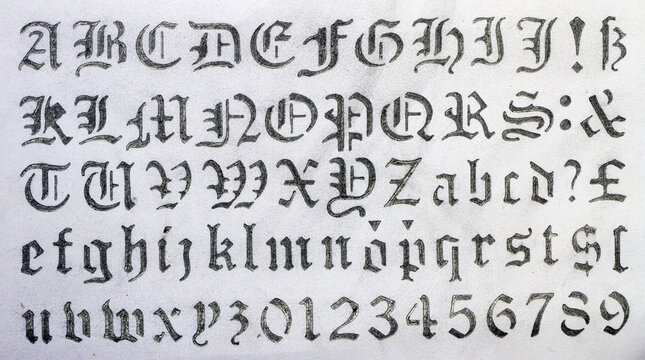 ABCDEFGHIJ!ß
KLMNOPQRS:&
TUVWXYZabcd?£
efghijklmnȯṗqrst$ſ
uvwxyz0123456789